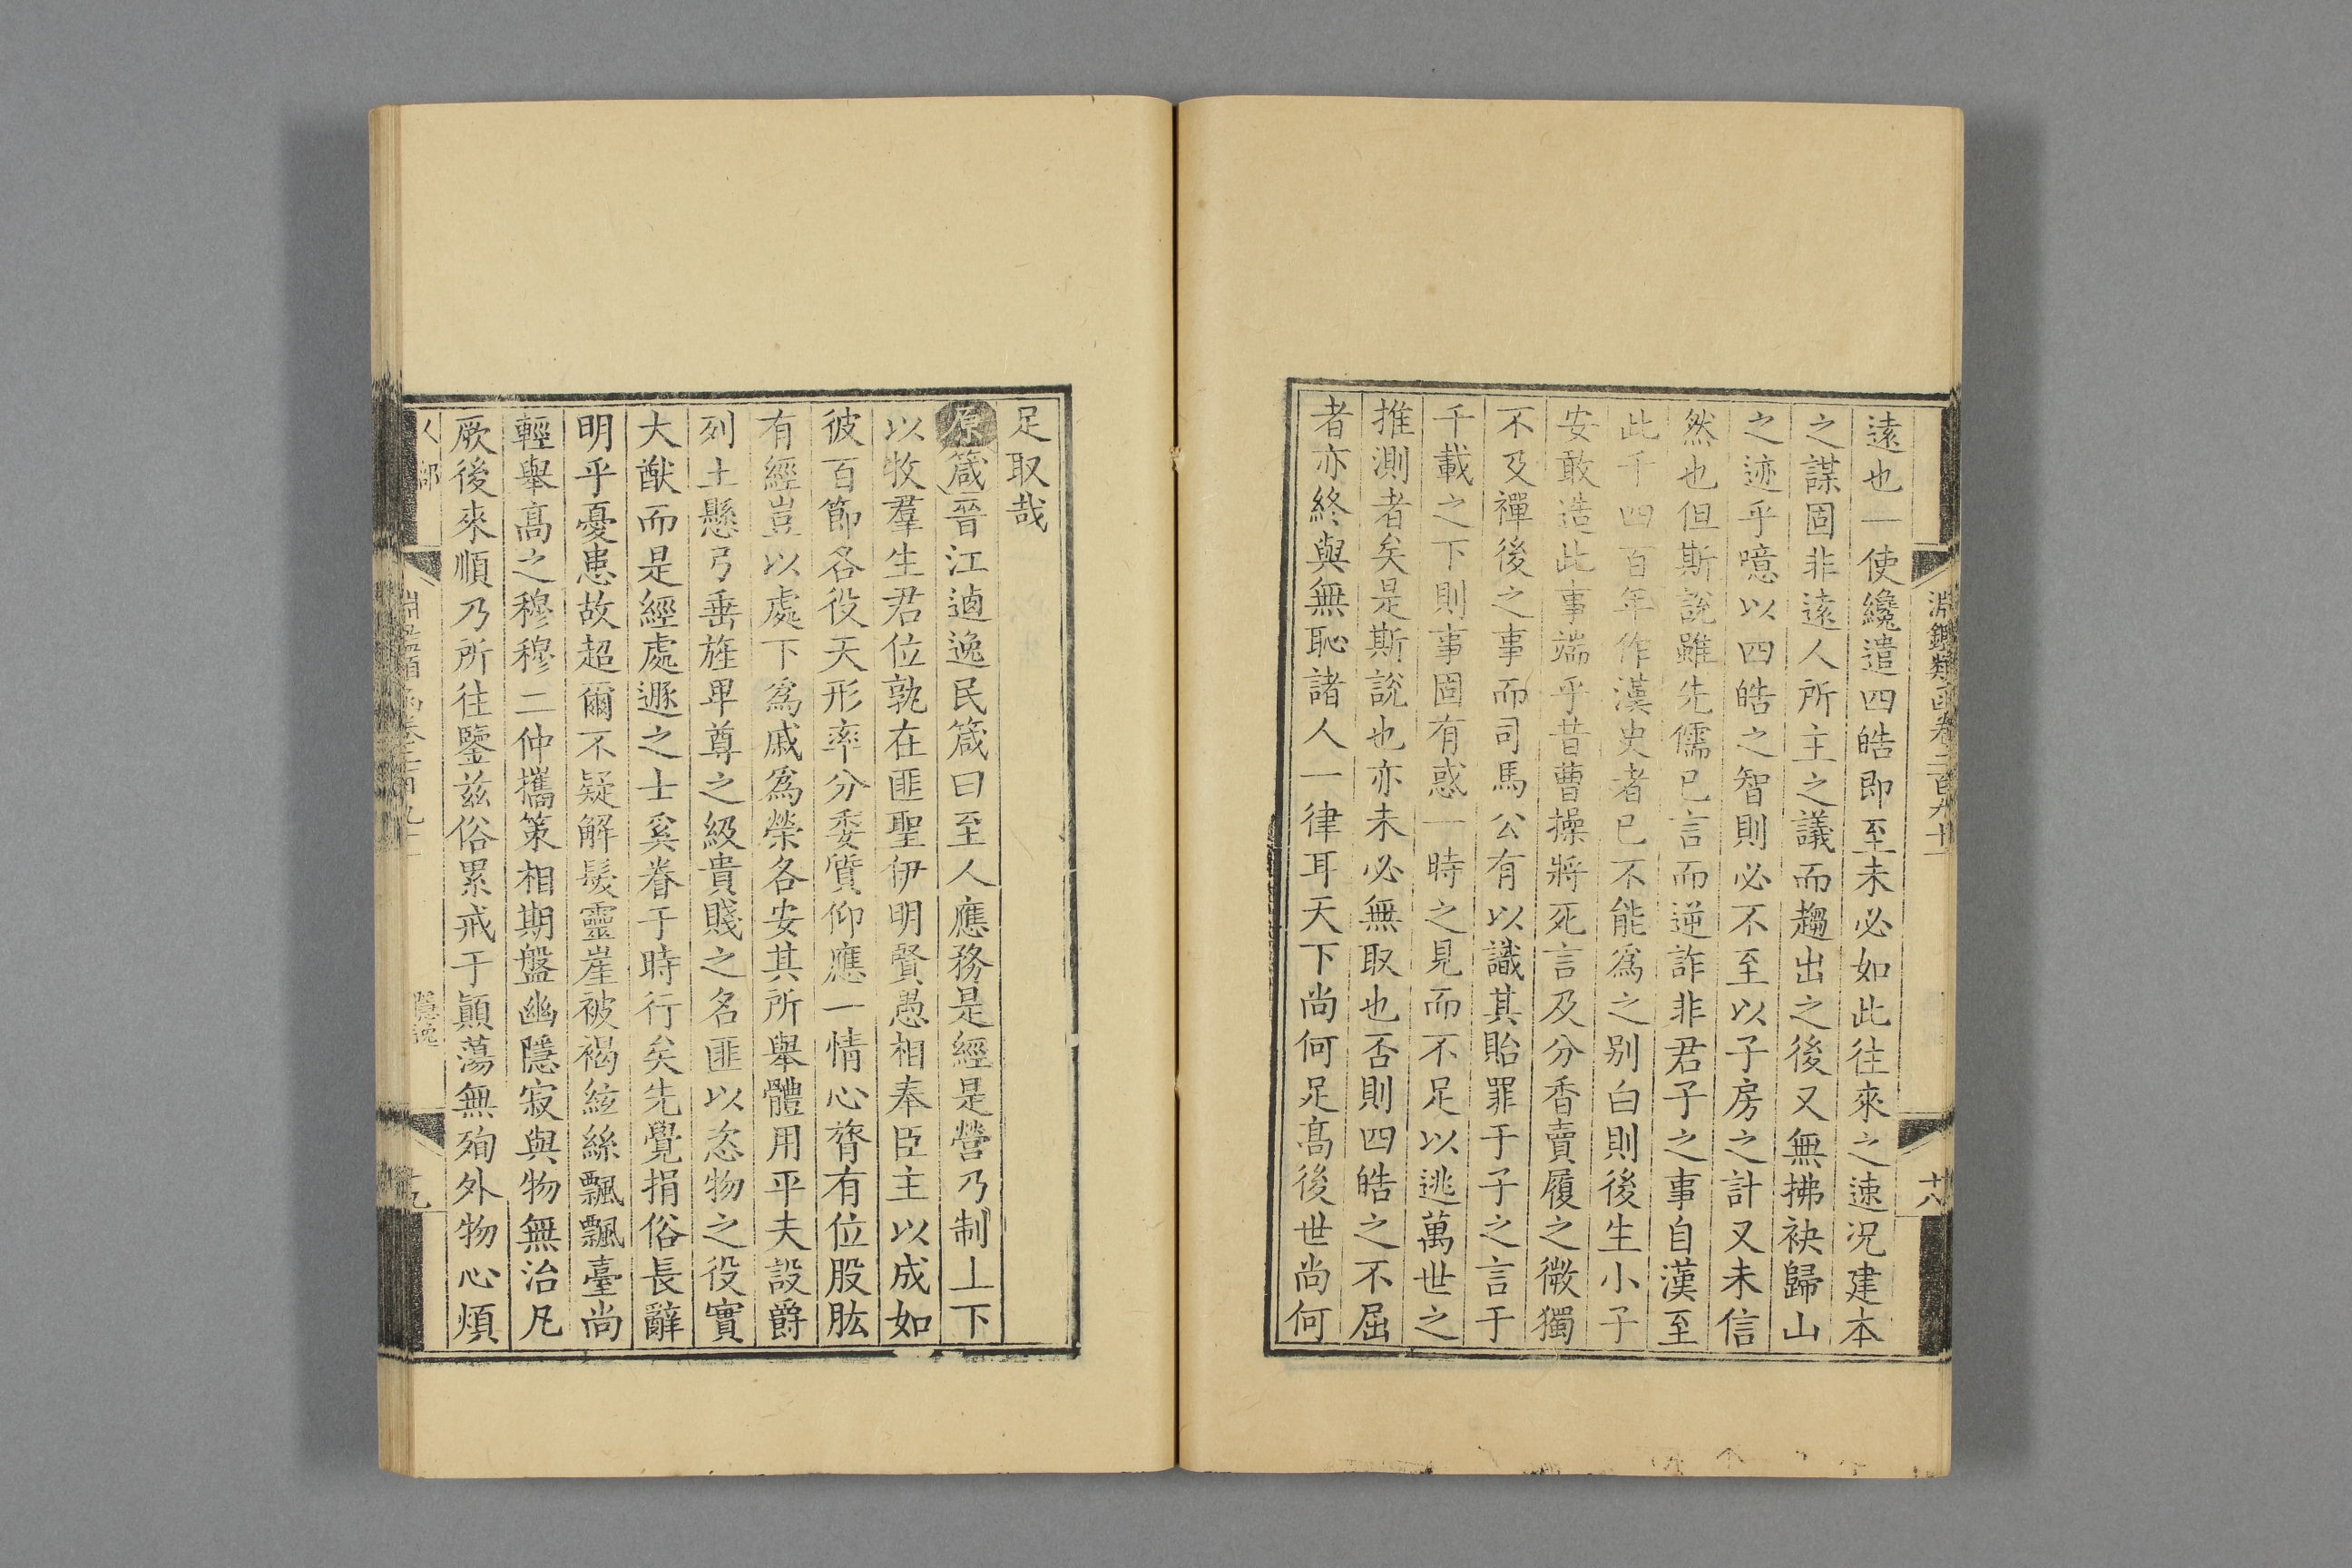 淵鑑類函卷二百九十一
十八
遠也一使纔遣四皓即至未必如此往來之速况建本
之謀固非遠人所主之議而趨出之後又無拂袂歸山
之迹乎噫以四皓之智則必不至以子房之計又未信
然也但斯說雖先儒已言而逆詐非君子之事自漢至
此千四百年作漢史者已不能為之别白則後生小子
安敢造此事端乎昔曹操將死言及分香賣履之微獨
不及禪後之事而司馬公有以識其貽罪于子之言于
千載之下則事固有惑一時之見而不足以逃萬世之
推測者矣是斯說也亦未必無取也否則四皓之不屈
者亦終與無恥諸人一律耳天下尚何足髙後世尚何
足取哉
原箴晉江逌逸民箴曰至人應務是經是營乃制上下
以牧羣生君位孰在匪聖伊明賢愚相奉臣主以成如
彼百節各役天形率分委質仰應一情心膂有位股肱
有經豈以處下為戚為榮各安其所舉體用平夫設爵
列土懸弓垂旌卑尊之級貴賤之名匪以恣物之役實
大猷而是經處遯之士奚眷于時行矣先覺捐俗長辭
明乎憂患故超爾不疑解髮靈崖被褐絃絲飄飄臺尚
輕舉髙之穆穆二仲攜策相期盤幽隱寂與物無治凡
厥後來順乃所往鑒兹俗累戒于顛蕩無殉外物心煩
人部
淵鑑類函卷二百九十一
隱逸
十九